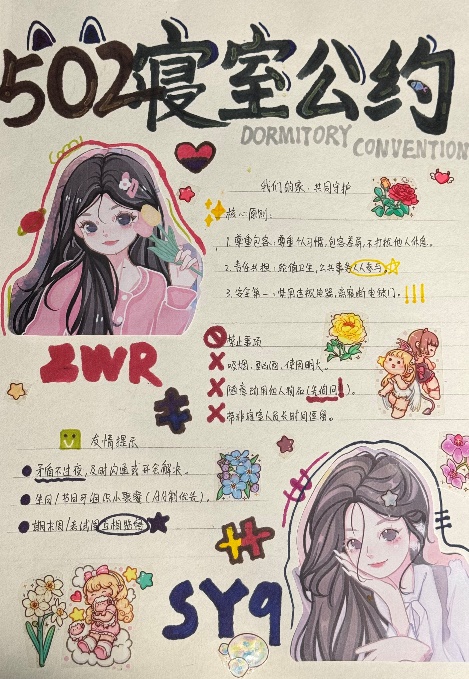 502寝室公约
DORMITORY CONVENTION
我们的家，共同守护
核心原则：
1. 尊重包容：尊重个人习惯，包容差异，不打扰他人休息。
2. 责任共担：轮值卫生，公共事务人人参与
3. 安全第一：禁用违规电器，离寝断电锁门。!!!
禁止事项
吸烟、酗酒、使用明火。
随意动用他人物品（先询问！）。
带非寝室人员长时间逗留。
ZWR
友情提示
矛盾不过夜，及时沟通或开会解决。
生日/节日可组织小聚餐（AA制优先）。
期末周/考试周互相监督
SYq